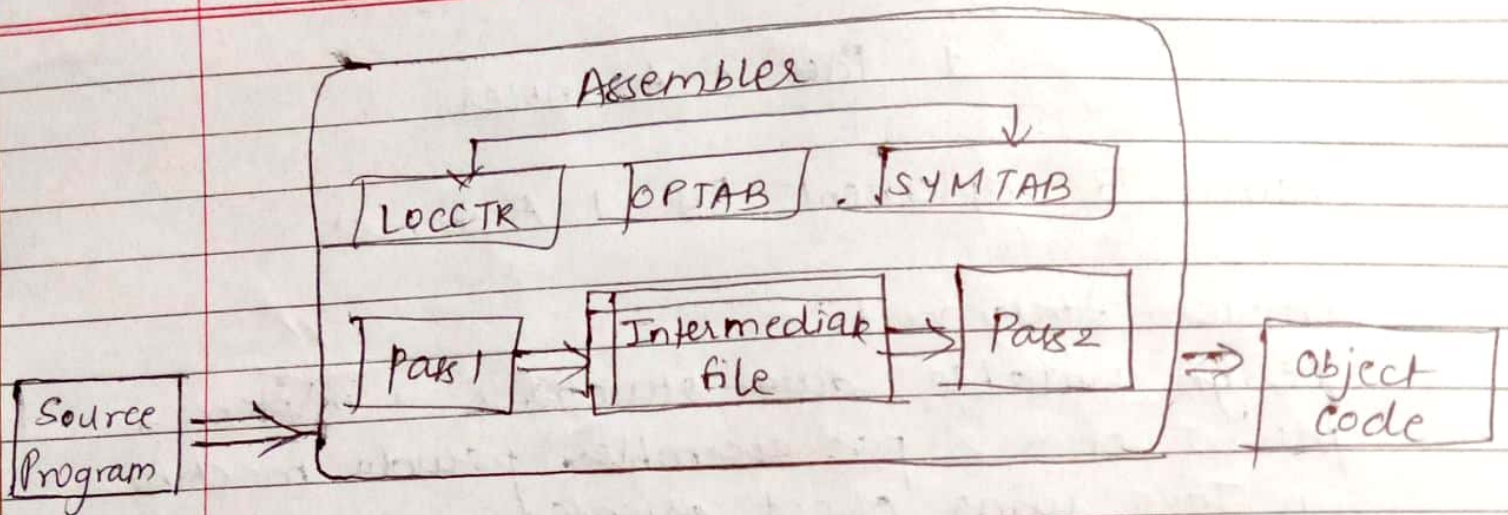 Assembler
LOCCTR
OPTAB
SYMTAB
Pass 1
Intermediate
file
Pass 2
Source
Program
Object
Code